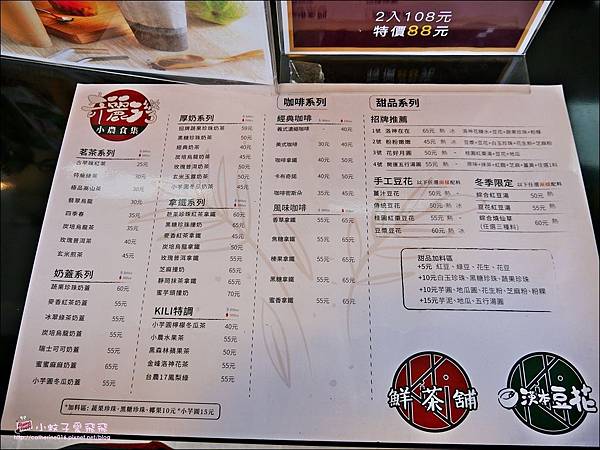 2入108元
特價88元
小農食集
茗茶系列
古早味紅茶 25元
特級綠茶 30元
極品高山茶 30元
翡翠烏龍 30元
四季春 35元
炭焙烏龍 35元
玫瑰普洱茶 40元
玄米煎茶 45元
奶蓋系列
蔬果珍珠奶蓋 60元
麥香紅茶奶蓋 55元
冰翠綠茶奶蓋 55元
炭培烏龍奶蓋 55元
瑞士可可奶蓋 55元
蜜蜜麻麻奶蓋 65元
小芋圓冬瓜奶蓋 55元
厚奶系列
招牌蔬果珍珠奶茶 50元
黑糖珍珠奶茶 50元
經典奶茶 40元
炭焙烏龍奶茶 45元
玫瑰普洱奶茶 50元
玄米玉露奶茶 50元
小芋圓冬瓜奶茶 45元
拿鐵系列
蔬菜珍珠紅茶拿鐵 60元
黑糖珍珠攪奶 60元
麥香紅茶拿鐵 45元
炭培烏龍拿鐵 50元
玫瑰普洱拿鐵 55元
芝麻攪奶 60元
靜岡抹茶拿鐵 60元
蜜芋頭攪奶 70元
KILI特調
小芋圓檸檬冬瓜茶 40元
小農水果茶 55元
黑森林蘋果茶 50元
金峰洛神花茶 55元
台農17鳳梨綠 55元
*加料區: 蔬果珍珠、黑糖珍珠、椰果10元 *小芋圓15元
咖啡系列
經典咖啡
義式濃縮咖啡 40元
美式咖啡 30元 40元
咖啡拿鐵 40元 50元
卡布奇諾 40元 50元
咖啡密斯朵 35元 45元
風味咖啡
香草拿鐵 55元
焦糖拿鐵 55元
榛果拿鐵 55元
黑糖拿鐵 55元
蜜香拿鐵 65元
甜品系列
招牌推薦
1號 洛神在在 65元 熱 冰 洛神花糖水+豆花+蔬果珍珠+粉粿
2號 粉粉嫩嫩 45元 熱 冰
3號 花好月圓 50元 熱
4號 炭燻五行湯圓 55元 熱
手工豆花 以下任選兩樣配料
薑汁豆花 50元 熱
傳統豆花 50元 熱 冰
桂圓紅棗豆花 55元 熱
豆漿豆花 60元 熱 冰
冬季限定 以下任選兩樣配料
綜合紅豆湯 50元 熱
豆花紅豆湯 55元 熱
綜合燒仙草 60元 熱
(任選三種料)
甜品加料區
+5元 紅豆、綠豆、花生、花豆
+10元白玉珍珠、黑糖珍珠、蔬果珍珠
+10元芋圓、地瓜圓、花生粉、芝麻粉、粉粿
+15元芋泥、地瓜、五行湯圓
鮮茶舖
淡水豆花
小蚊子愛飛飛
http://catherine014.pixnet.net/blog